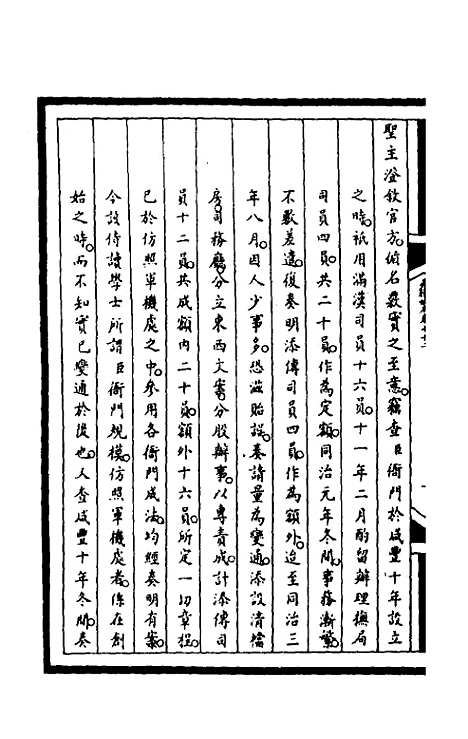 聖主澄敘官方循名覈實之至意竊查臣衙門於咸豐十年設立
之時祇用滿漢司員十六員十一年二月酌留辦理撫局
司員四員共二十員作為定額同治元年冬間事務漸繁
不敷差遣復奏明添傳司員四員作為額外迨至同治三
年八月因人少事多恐滋貽誤奏請量為變通添設清檔
房司務廳分立東西文案分股辦事以專責成計添傳司
員十二員共成額內二十員額外十六員所定一切章程
已於仿照軍機處之中參用各衙門成法均經奏明有案
今該侍讀學士所謂臣衙門規模仿照軍機處者係在創
始之時而不知實已變通於後也又查咸豐十年冬間奏